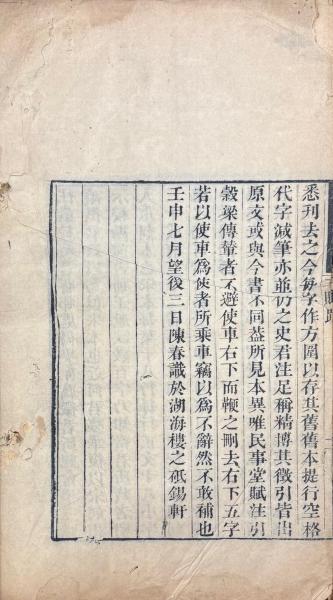 悉刋去之今每字作方圍以存其舊舊本提行空格
代字減筆亦並仍之史君注足稱精博其徵引皆出
原文或與今書不同葢所見本異唯民事堂賦注引
穀梁傳輦者不避使車右下而鞭之刪去右下五字
若以使車為使者所乗車竊以為不辭然不敢補也
壬申七月望後三日陳春識於湖海樓之祇錫軒